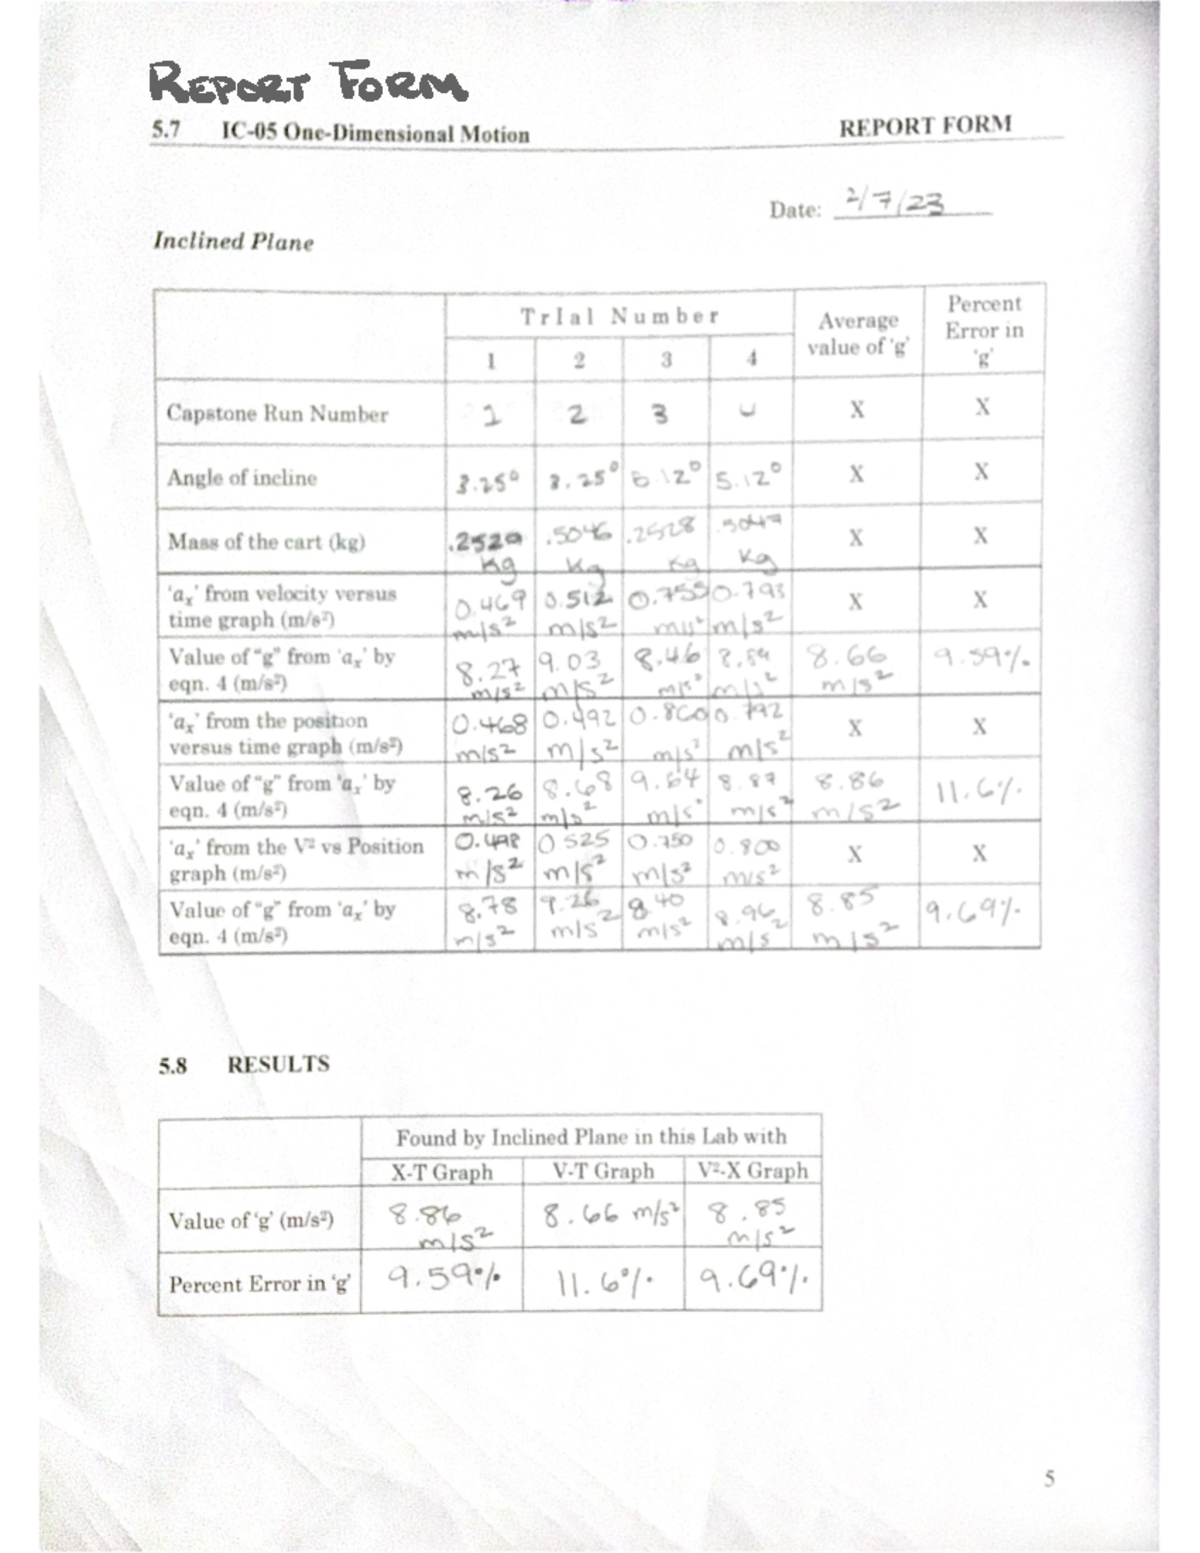 REPORT FORM
5.7 IC-05 One-Dimensional Motion REPORT FORM
Date: 2/7/23
Inclined Plane
TrIal Number Average value of 'g' Percent Error in 'g'
1 2 3 4
Capstone Run Number 1 2 3 X X
Angle of incline 3.25° 3.25° 5.12° 5.12° X X
Mass of the cart (kg) .2529 kg .5046 kg .2528 kg .5047 kg X X
'aₓ' from velocity versus time graph (m/s²) 0.469 m/s² 0.512 m/s² 0.755 m/s² 0.793 m/s² X X
Value of "g" from 'aₓ' by eqn. 4 (m/s²) 8.27 m/s² 9.03 m/s² 8.46 m/s² m/s² 8.66 m/s² 9.59%
'aₓ' from the position versus time graph (m/s²) 0.468 m/s² 0.492 m/s² 0.860 m/s² 0.792 m/s² X X
Value of "g" from 'aₓ' by eqn. 4 (m/s²) 8.26 m/s² 8.68 m/s² 9.64 m/s² 8.87 m/s² 8.86 m/s² 11.6%
'aₓ' from the V² vs Position graph (m/s²) 0.498 m/s² 0.525 m/s² 0.750 m/s² 0.800 m/s² X X
Value of "g" from 'aₓ' by eqn. 4 (m/s²) 8.78 m/s² 9.26 m/s² 8.40 m/s² 8.96 m/s² 8.85 m/s² 9.69%
5.8 RESULTS
Found by Inclined Plane in this Lab with
X-T Graph V-T Graph V²-X Graph
Value of 'g' (m/s²) 8.86 m/s² 8.66 m/s² 8.85 m/s²
Percent Error in 'g' 9.59% 11.6% 9.69%
5